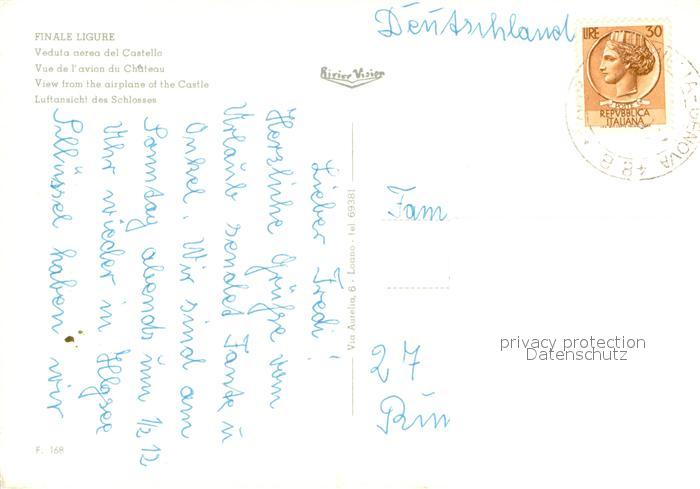 FINALE LIGURE
Veduta aerea del Castello
Vue de l'avion du Château
View from the airplane of the Castle
Luftansicht des Schlosses
Rivier Vision
Deutschland
LIRE 30
POSTE
REPVBBLICA
ITALIANA
GENOVA
Lieber Fredi!
Herzliche Grüße vom
Urlaub sendet Tante u
Onkel. Wir sind am
Sonntag abends um 1/2 12
Uhr wieder in
haben wir
Via Aurelia, 6 - Loano - tel. 69381
Fam
27
privacy protection
Datenschutz
F. 168